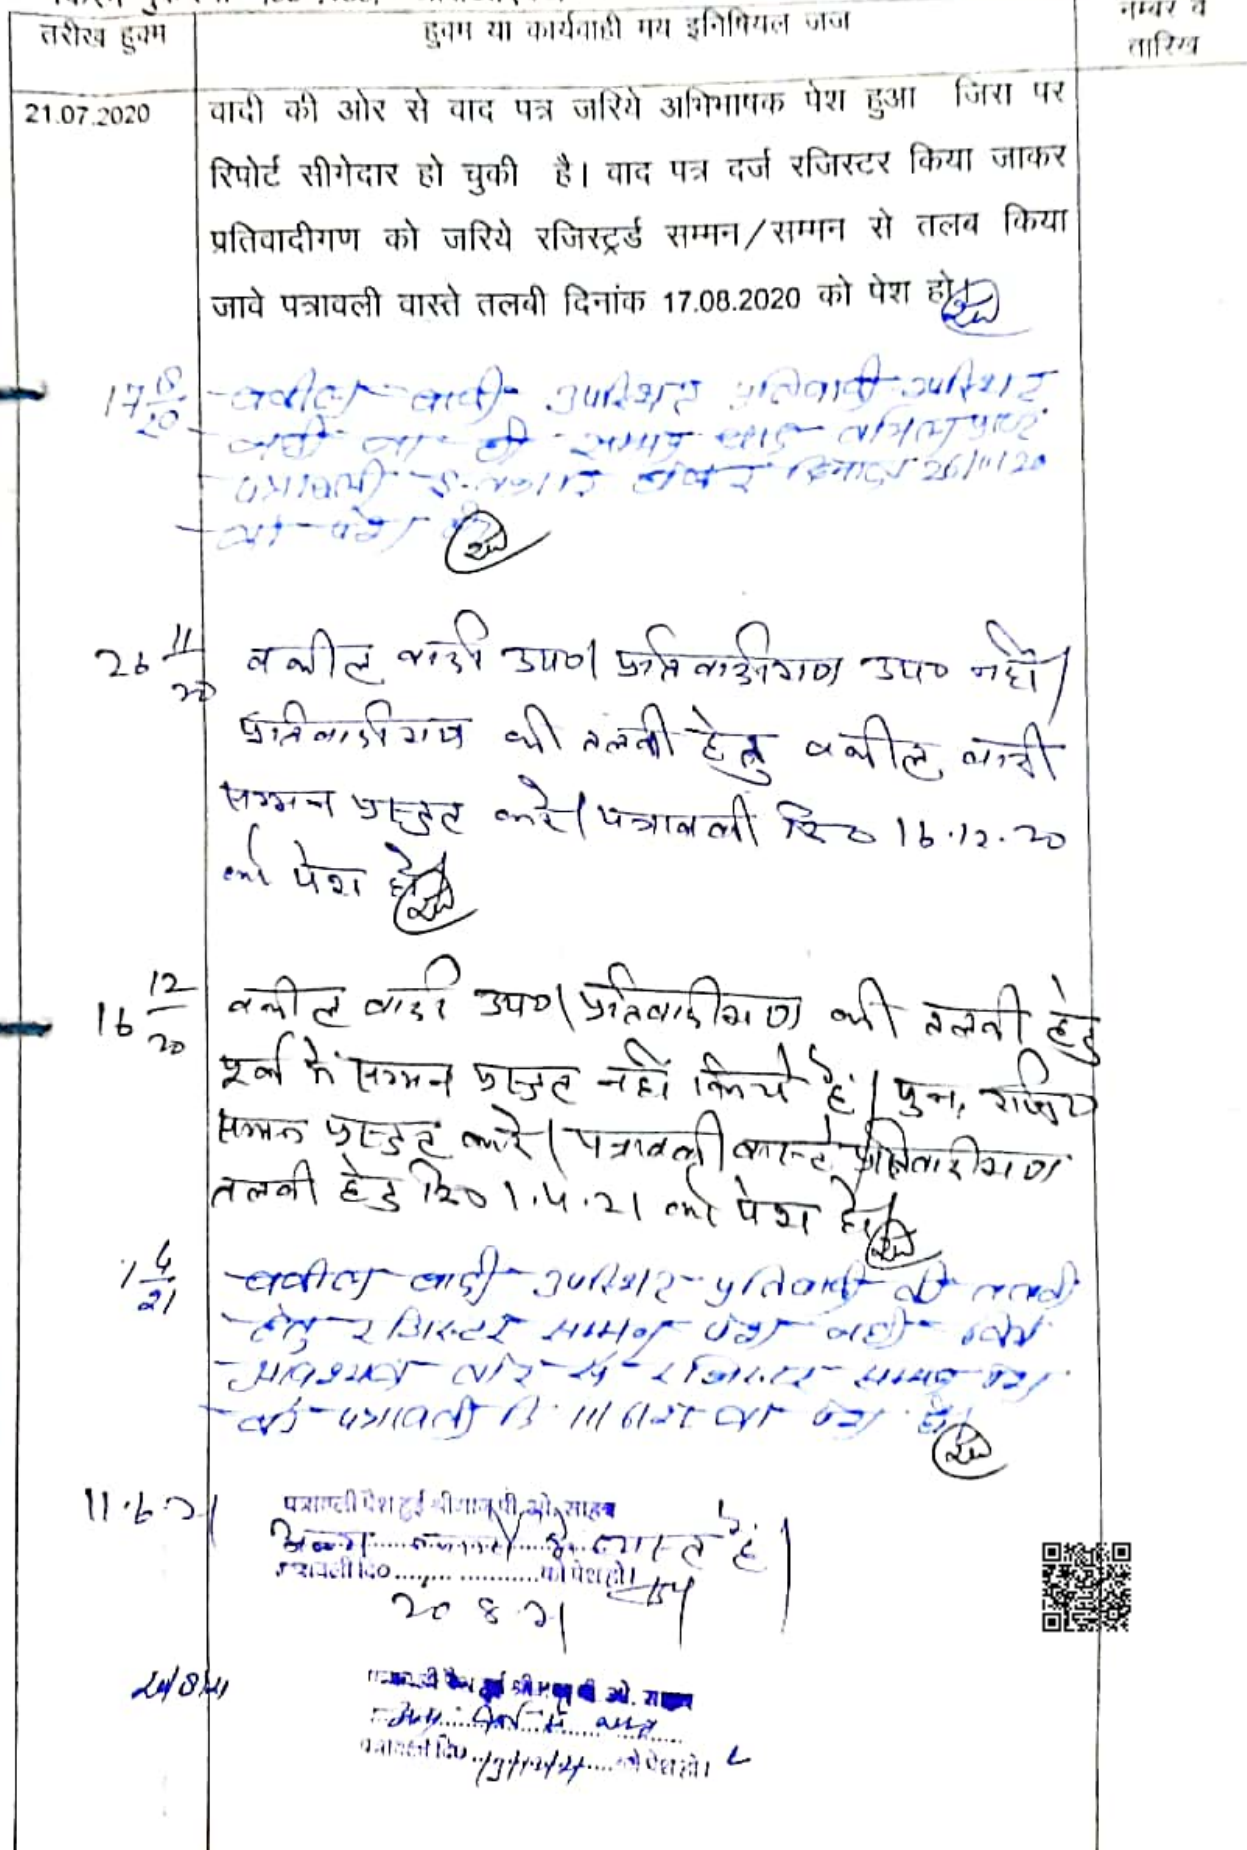 तारीख हुक्म
हुक्म या कार्यवाही मय इनिषियल जज
नम्बर व
तारिख
21.07.2020
वादी की ओर से वाद पत्र जरिये अभिभाषक पेश हुआ जिस पर
रिपोर्ट सीगेदार हो चुकी है। वाद पत्र दर्ज रजिस्टर किया जाकर
प्रतिवादीगण को जरिये रजिस्ट्रर्ड सम्मन/सम्मन से तलब किया
जावे पत्रावली वास्ते तलबी दिनांक 17.08.2020 को पेश हो।
17 8/20 वकील वादी उपस्थित प्रतिवादी उपस्थित
नहीं
पत्रावली इन्तजार होकर दिनांक 26/11/20
को पेश हो
26 11/20 वकील वादी उप0। प्रतिवादीगण उप0 नहीं।
प्रतिवादीगण की तलबी हेतु वकील वादी
सम्मन प्रस्तुत करे। पत्रावली दि0 16.12.20
को पेश हो।
16 12/20 वकील वादी उप0। प्रतिवादीगण की तलबी हेतु
पूर्व के सम्मन प्रस्तुत नहीं किये है। पुनः रजि0
सम्मन प्रस्तुत करे। पत्रावली वास्ते प्रतिवादीगण
तलबी हेतु दि0 1.4.21 को पेश हो।
1 4/21 वकील वादी उपस्थित प्रतिवादी की तलबी
हेतु रजिस्टर सम्मन पेश नहीं किये
आवश्यक तौर से रजिस्टर सम्मन पेश
करे पत्रावली दि 11/6/21 को पेश हो।
11.6.21
पत्रावली पेश हुई श्रीमान् पी. ओ. साहब
अन्य कार्यो में व्यस्त है।
पत्रावली दि0 .................. को पेश हो।
20 8 21
20/8/21
पत्रावली पेश हुई श्रीमान् पी. ओ. साहब
पत्रावली दि0 ...... को पेश हो।